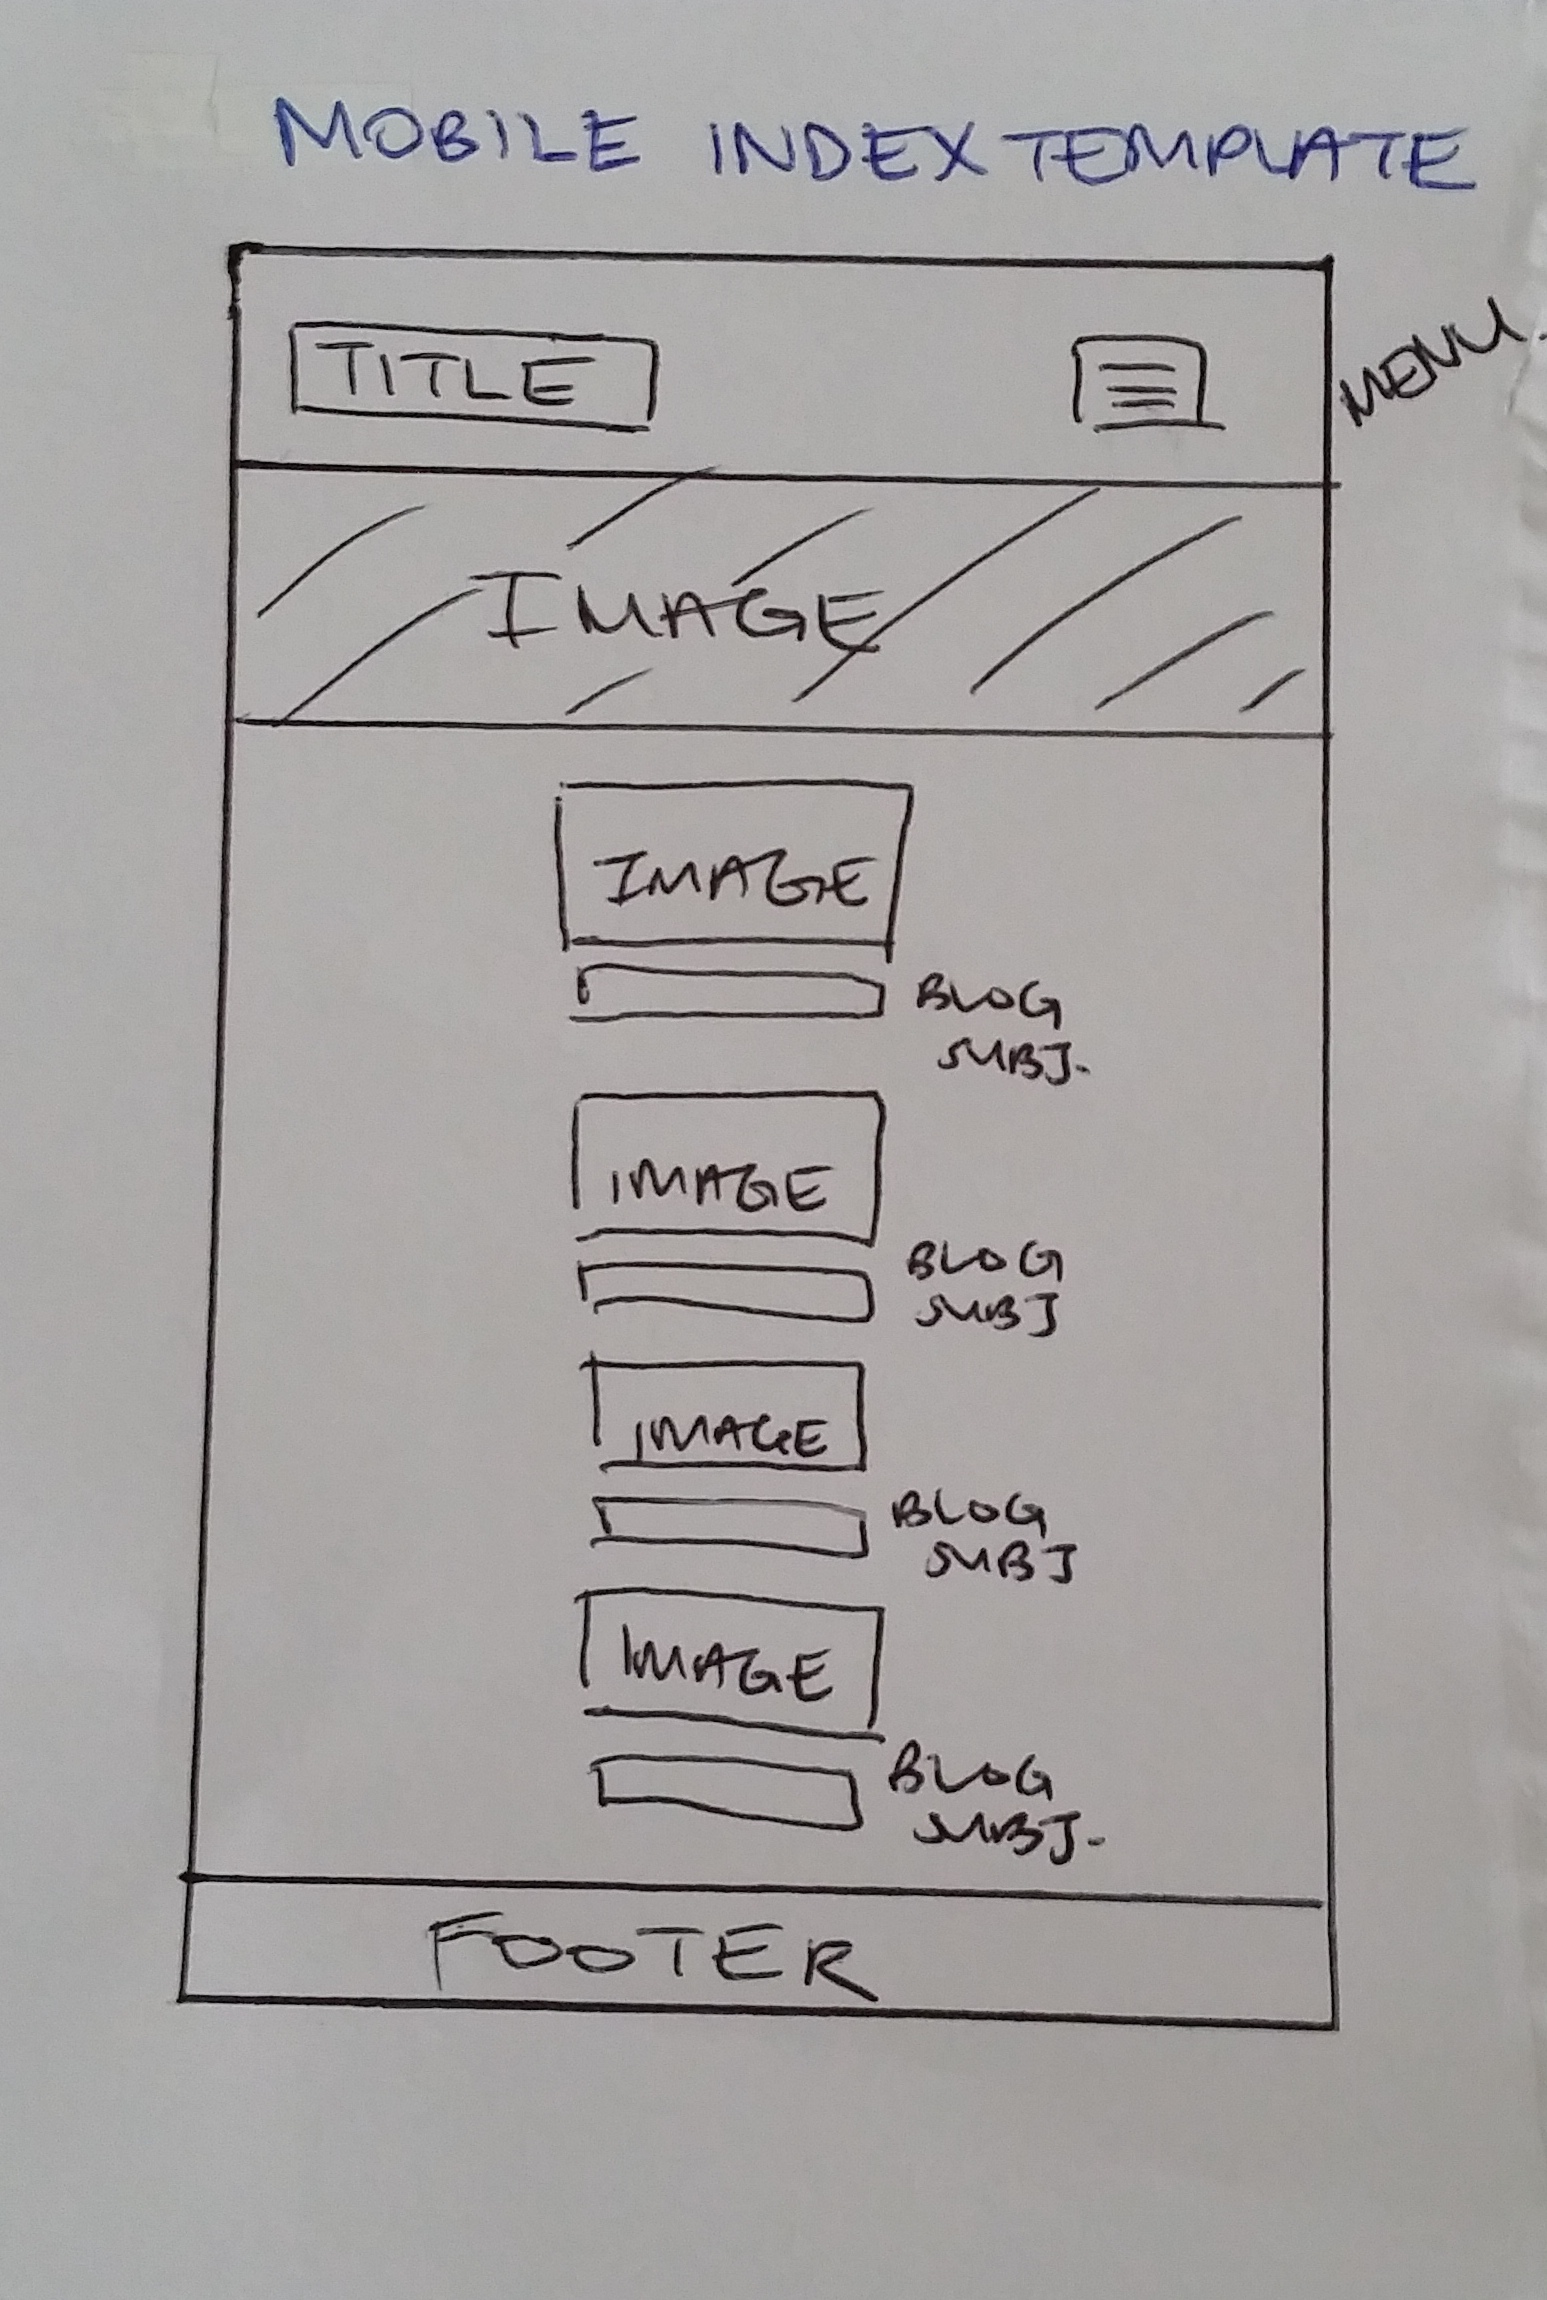 MOBILE INDEX TEMPLATE
TITLE
MENU.
IMAGE
IMAGE
BLOG
SUBJ.
IMAGE
BLOG
SUBJ
IMAGE
BLOG
SUBJ
IMAGE
BLOG
SUBJ.
FOOTER